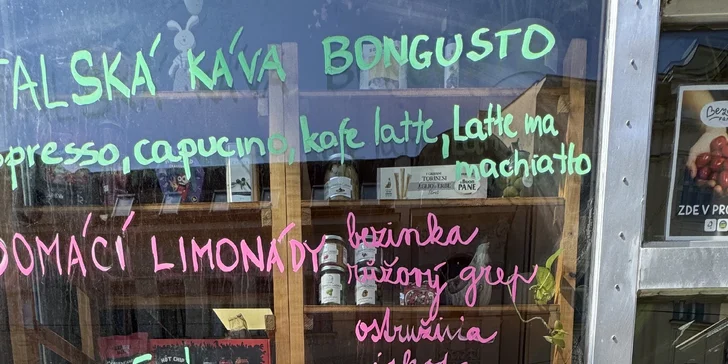 TALSKÁ KÁVA BONGUSTO
spresso, capucino, kafe latte, Latte ma
machiatto
DOMÁCÍ LIMONÁDY bezinka
růžový grep
ostružina
TORINESI
PANE
ZDE V PRO
HOT CHIP